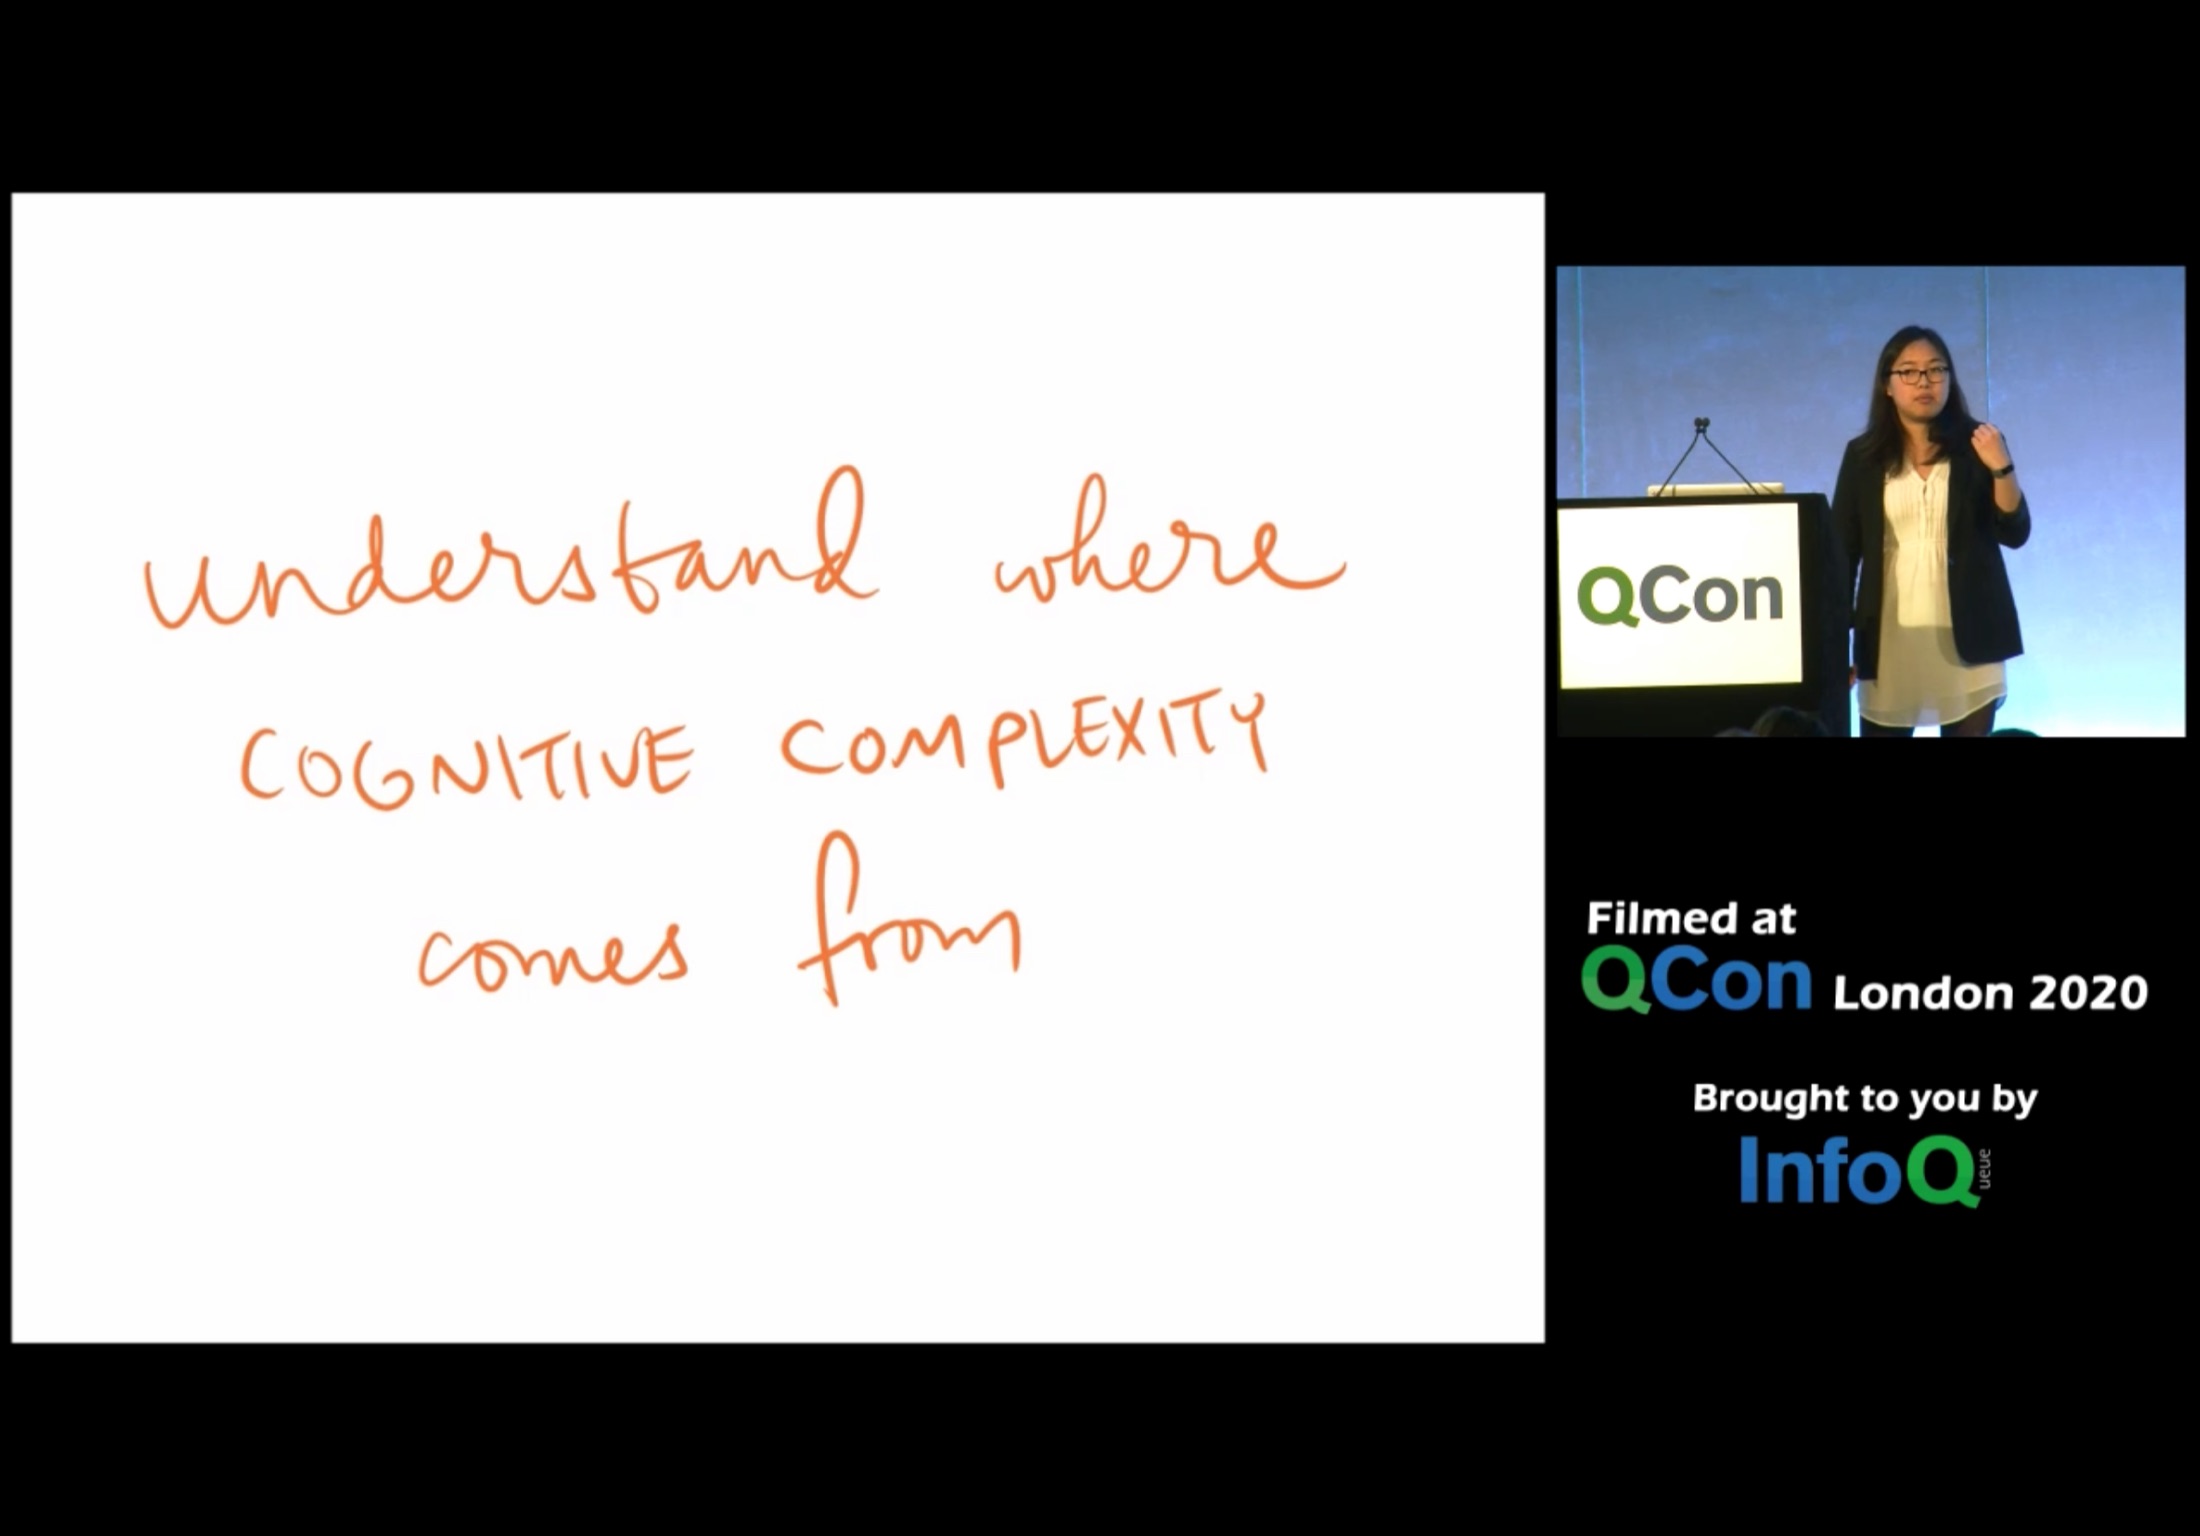 understand where
COGNITIVE COMPLEXITY
comes from
QCon
Filmed at
QCon London 2020
Brought to you by
InfoQ
ueue